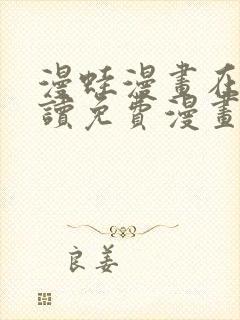 漫蛙漫畫在
讀免費漫畫
良姜